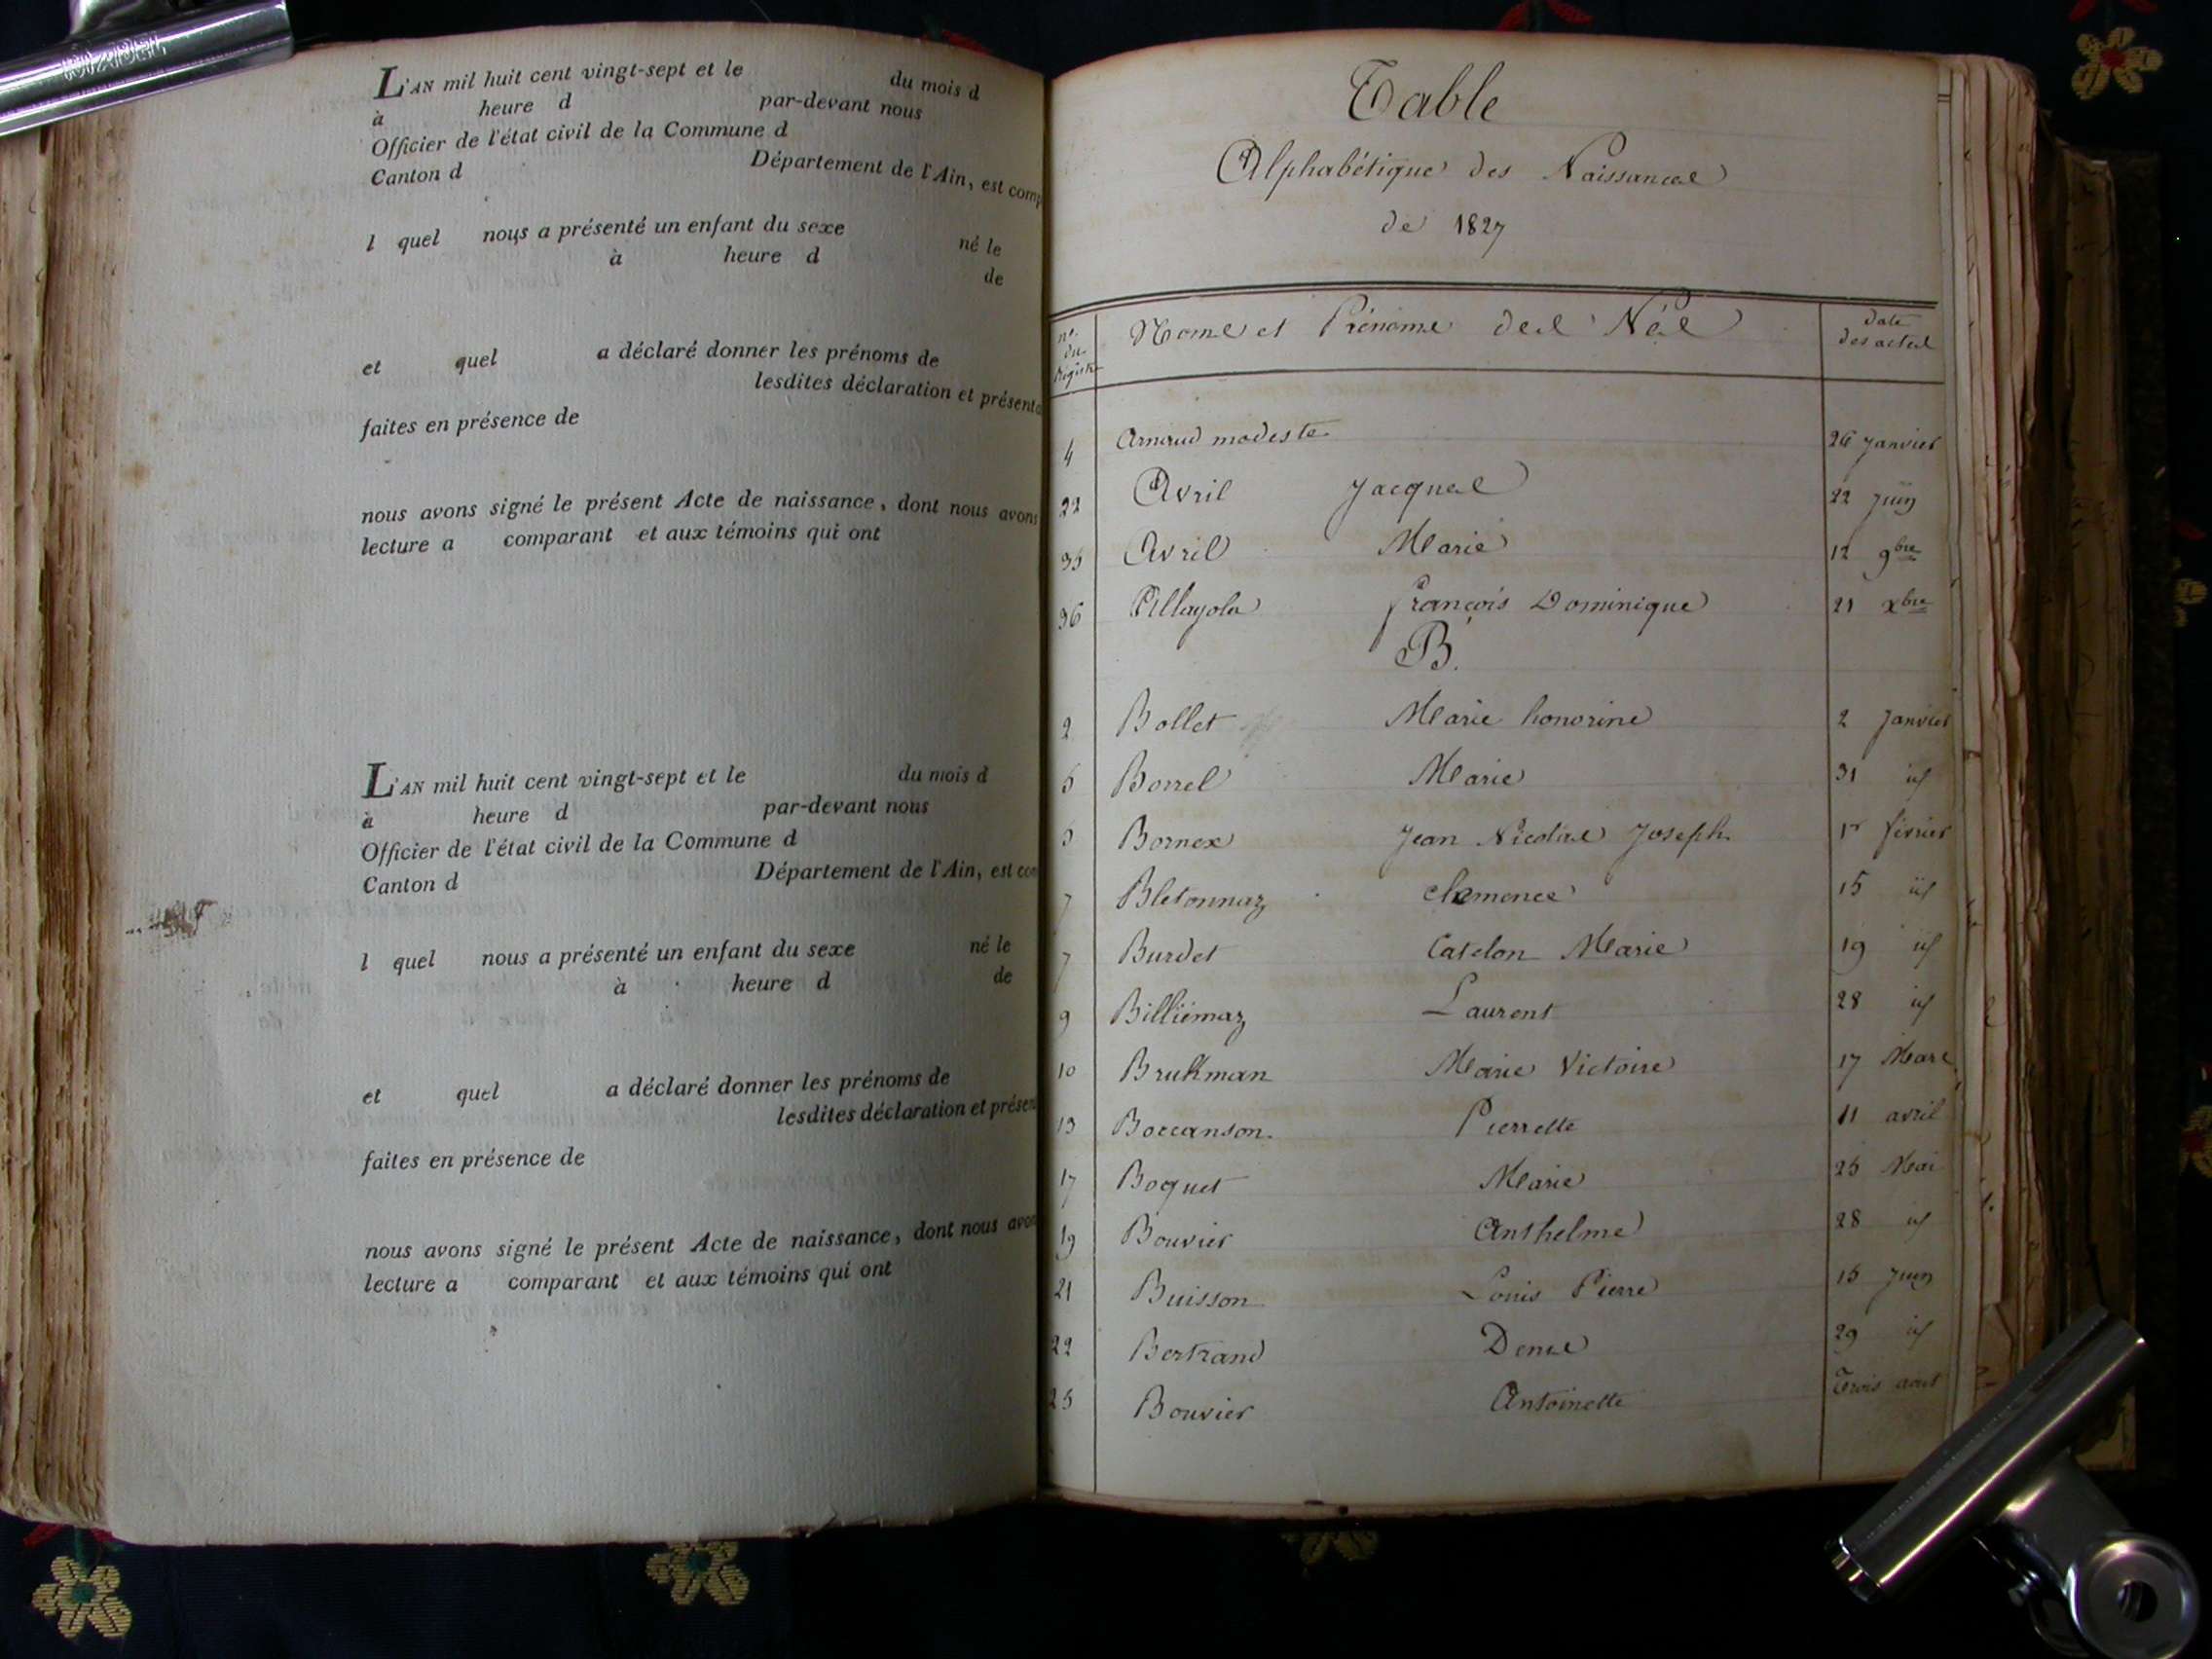 L'AN mil huit cent vingt-sept et le du mois d
à heure d par-devant nous
Officier de l'état civil de la Commune d
Canton d Département de l'Ain, est comp
l quel nous a présenté un enfant du sexe né le
à heure d de
et quel a déclaré donner les prénoms de
lesdites déclaration et présenta
faites en présence de
nous avons signé le présent Acte de naissance, dont nous avons
lecture a comparant et aux témoins qui ont
L'AN mil huit cent vingt-sept et le du mois d
à heure d par-devant nous
Officier de l'état civil de la Commune d
Canton d Département de l'Ain, est com
l quel nous a présenté un enfant du sexe né le
à heure d de
et quel a déclaré donner les prénoms de
lesdites déclaration et présen
faites en présence de
nous avons signé le présent Acte de naissance, dont nous avon
lecture a comparant et aux témoins qui ont
Table
Alphabétique des Naissances
de 1827
nos du Registre Noms et Prénoms des Nés date des actes
4 Arnaud modeste 26 Janvier
22 Avril Jacques 22 Juin
35 Avril Marie 12 9bre
36 Allayola François Dominique 21 xbre
B.
2 Bollet Marie honorine 2 Janvier
5 Borrel Marie 31 id
5 Bornex Jean Nicolas Joseph 1r février
7 Bletonnaz clemence 15 id
7 Burdet Marie 19 id
9 Billiemaz Laurent 28 id
10 Brukman Marie Victoire 17 Mars
13 Boccanson Pierrette 11 avril
17 Boquet Marie 25 Mai
19 Bouvier Anthelme 28 id
21 Buisson Louis Pierre 15 Juin
22 Bertrand Denis 29 id
25 Bouvier Antoinette Trois aout